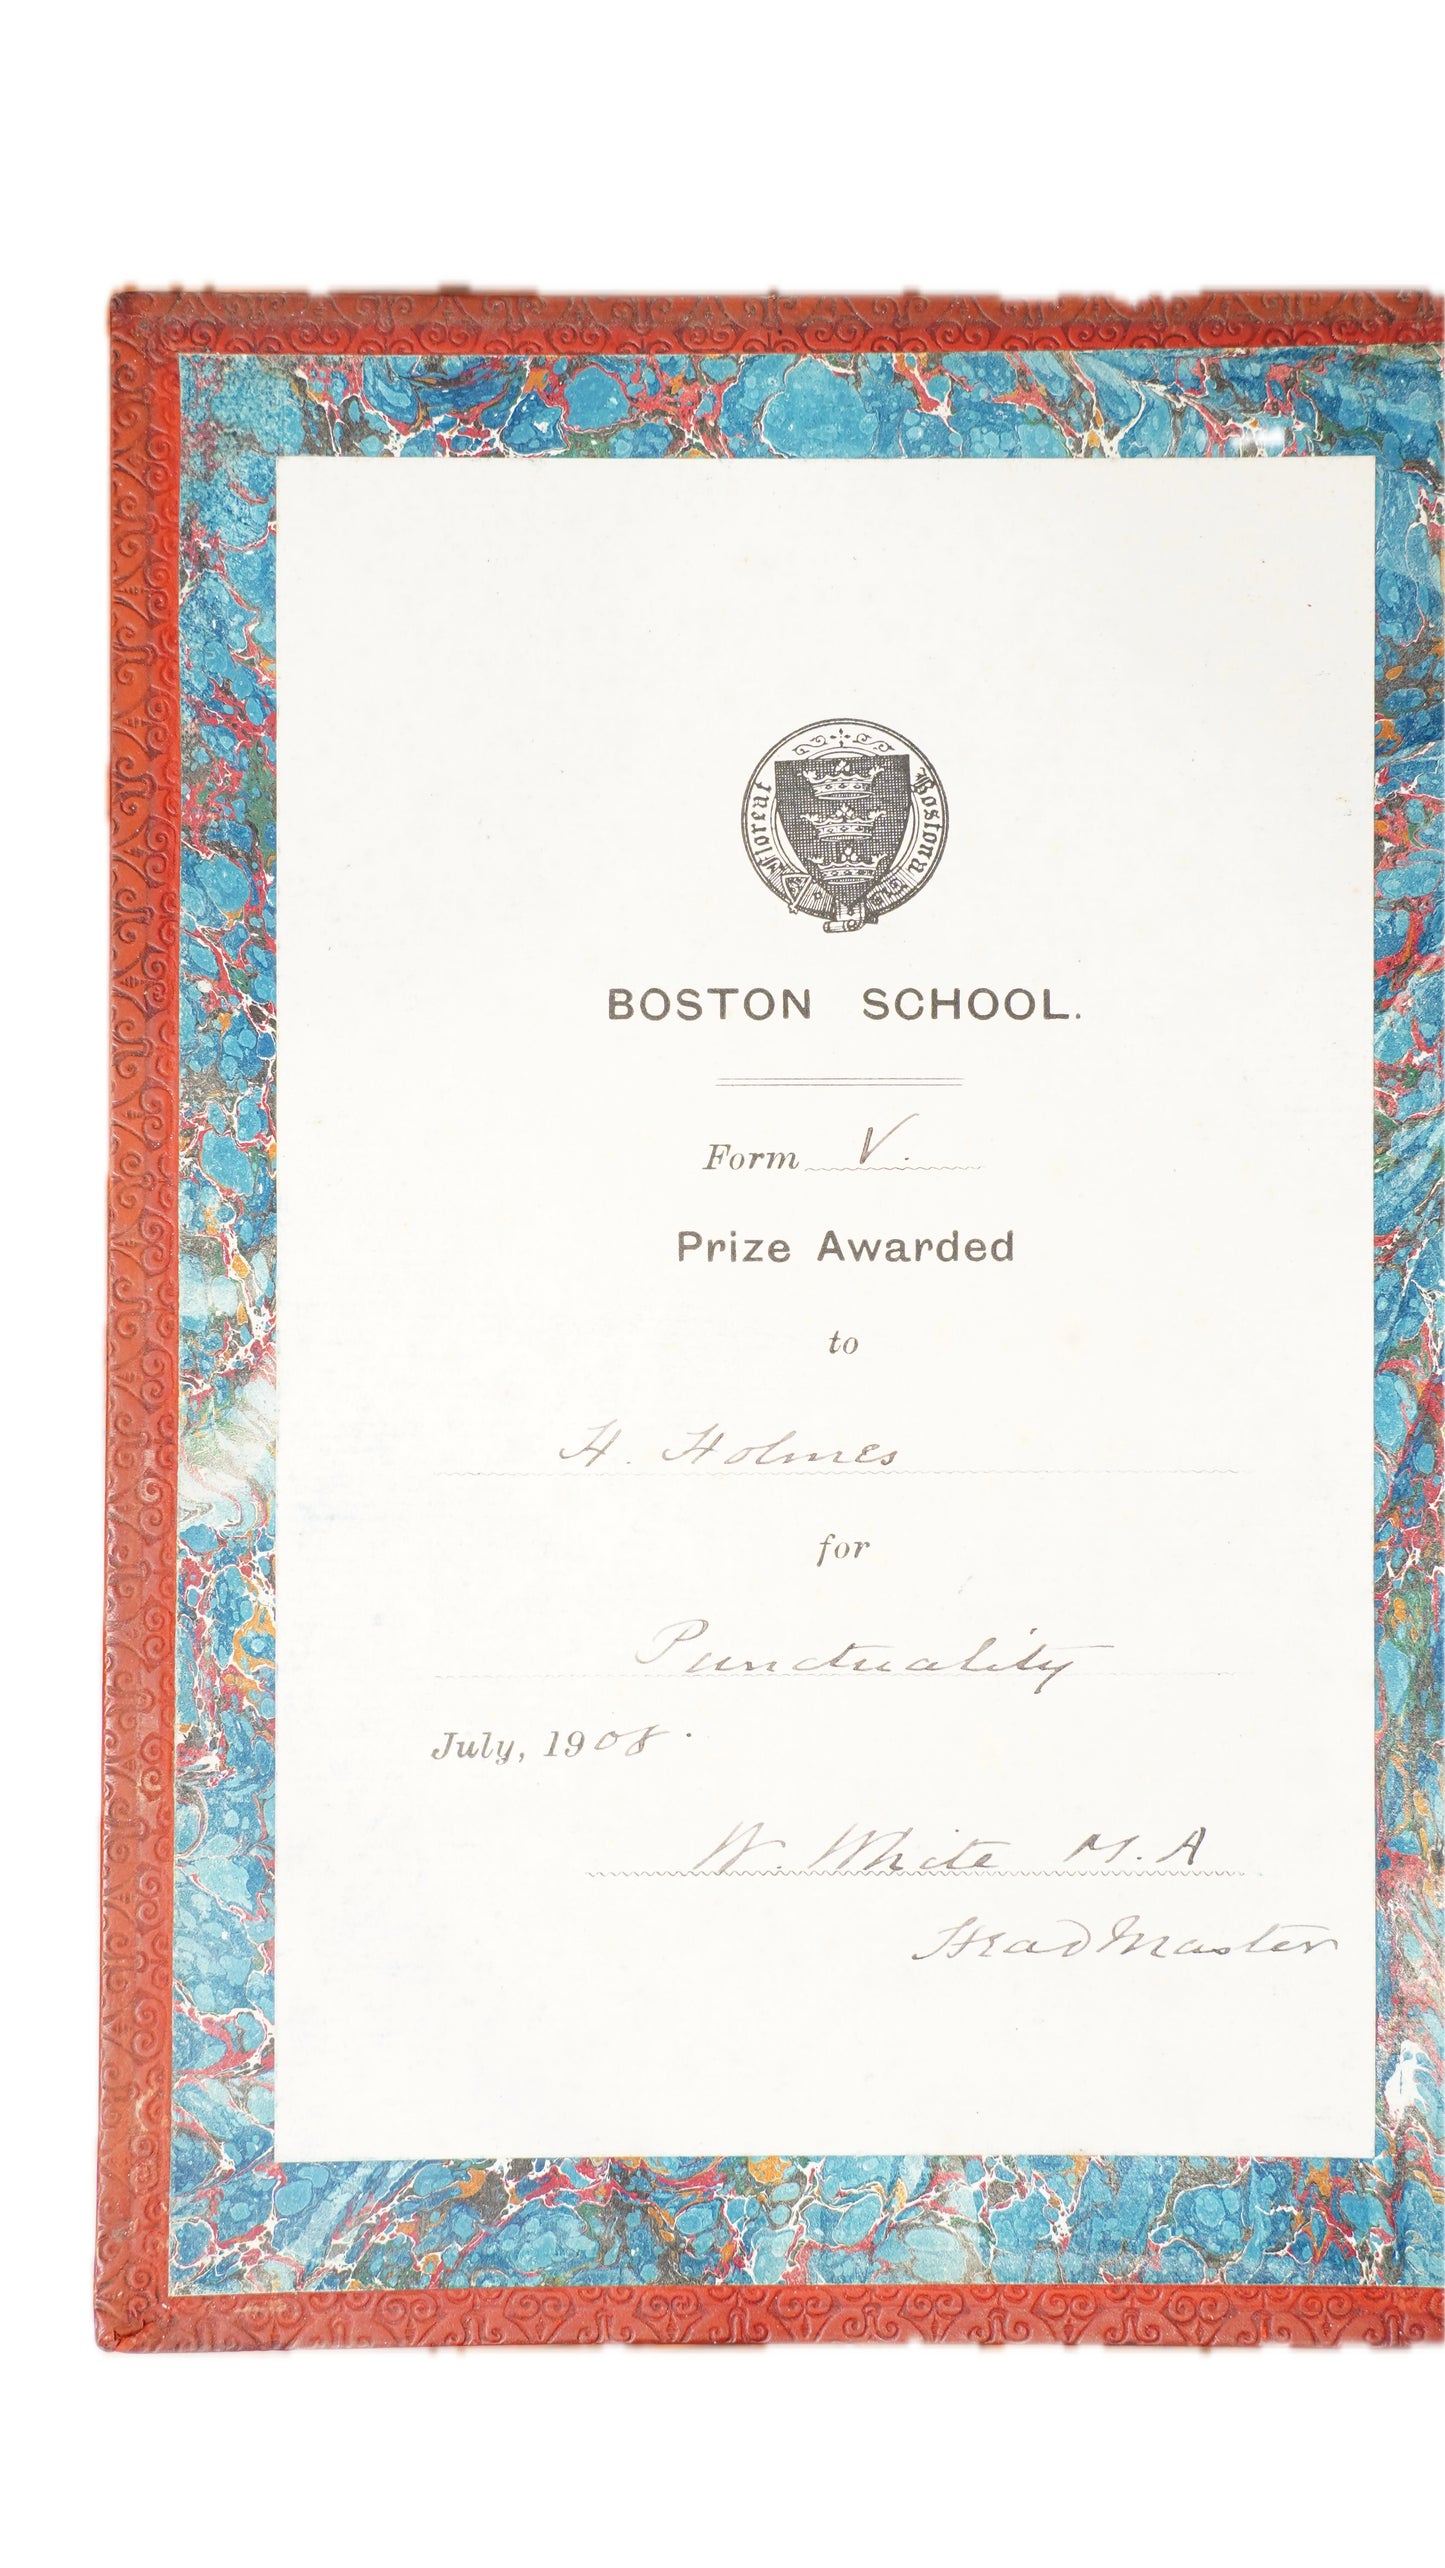 Floreat Bostona
BOSTON SCHOOL.
Form V.
Prize Awarded
to
H. Holmes
for
Punctuality
July, 1908.
W. White M.A
Head Master